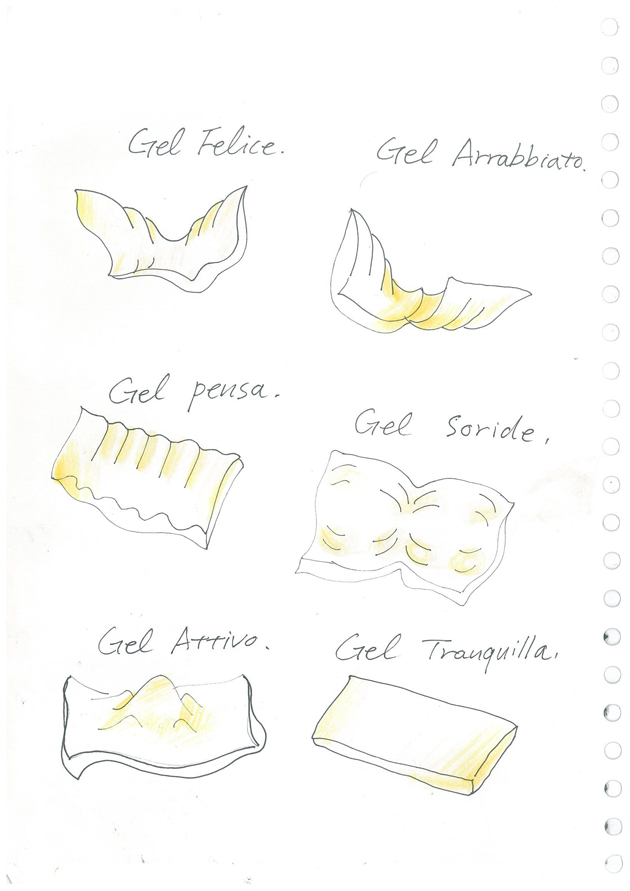 Gel Felice.
Gel Arrabbiato.
Gel pensa.
Gel Soride,
Gel Attivo.
Gel Tranquilla,